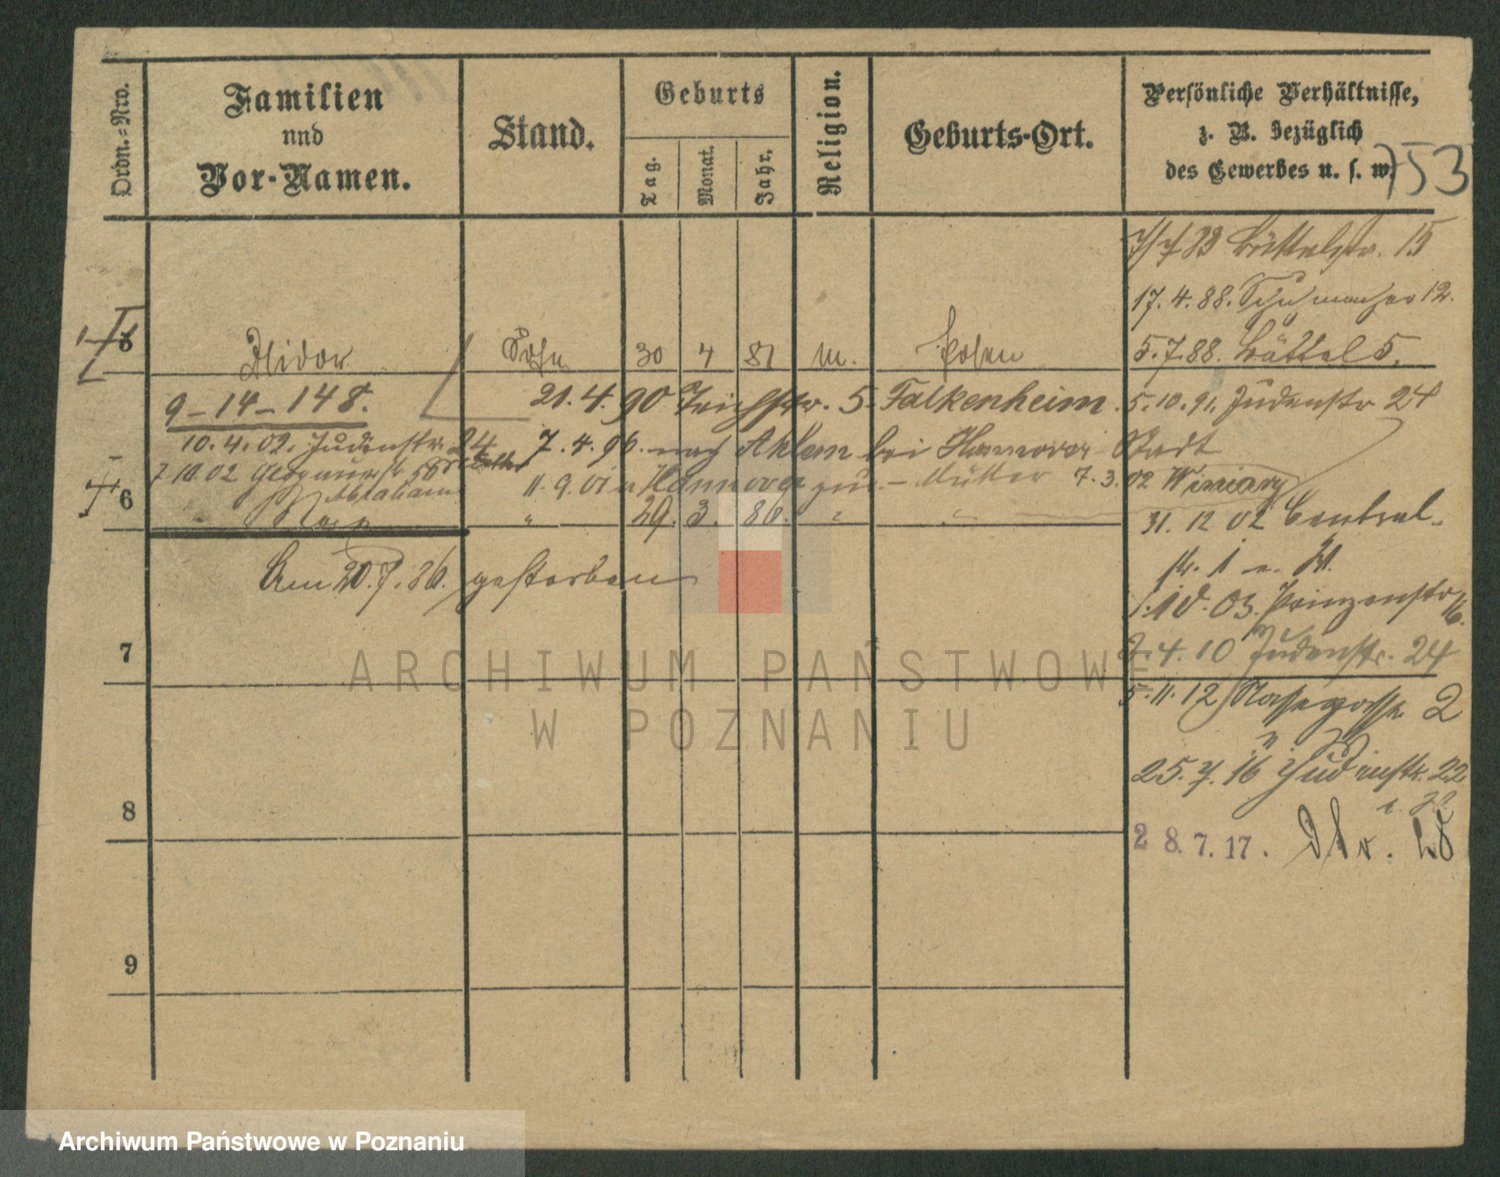 Ordn.=Nro.
Familien
und
Vor-Namen.
Stand.
Geburts
Tag.
Monat.
Jahr.
Religion.
Geburts-Ort.
Persönliche Verhältnisse,
z. B. bezüglich
des Gewerbes u. s. w.
753
7/7 83 Büttelstr. 15
17.4.88. Schuhmacher 12.
5.7.88. Büttel 5.
Isidor
Sohn
30 4 81
m.
Posen
9-14-148.
21.4.90 Teichstr. 5. Falkenheim.
5.10.91. Judenstr 24
10.4.02. Judenstr. 24
7.4.96. nach Ahlem bei Hannover Stadt
7 10 02
11.9.01 v Hannover zur. - Mutter 7.3.02 Winiary
6
Abraham
" 29. 3. 86. " "
31. 12 02 Central-
Am 20.7.86. gestorben
1.10.03. Prinzenstr 16.
7
2.4.10 Judenstr. 24
5.11.12 Nassegasse 2
25.7.16 Judenstr. 22
8
28.7.17.
9
ARCHIWUM PAŃSTWOWE
W POZNANIU
Archiwum Państwowe w Poznaniu